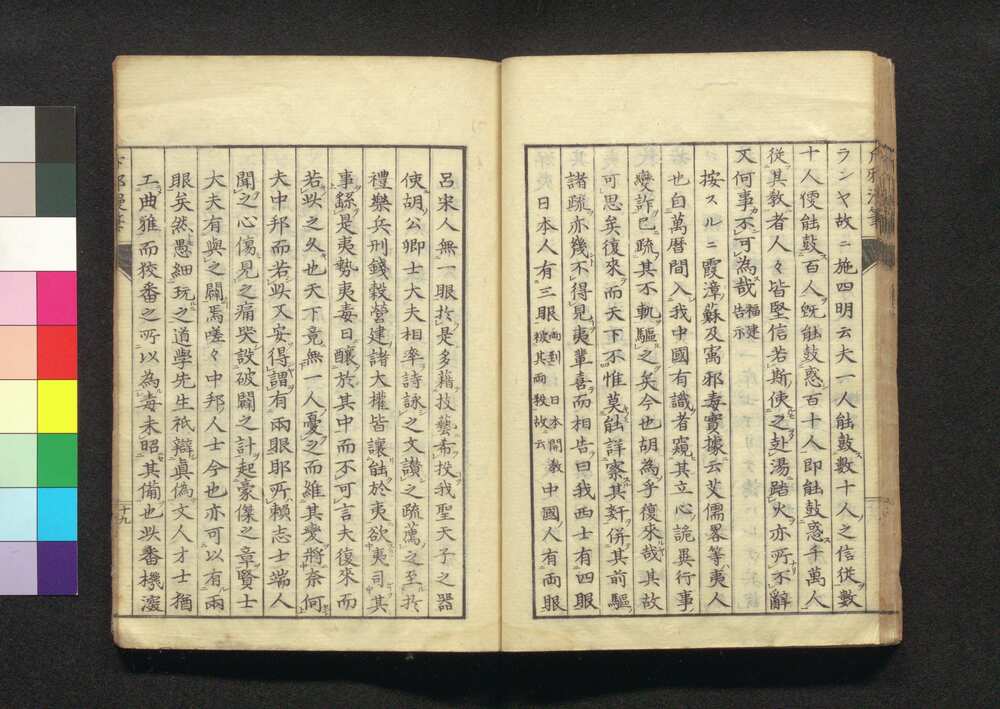 ランヤ故ニ施四明云夫一人能鼓數十人之信從數
十人便能鼓百人既能鼓惑百十人即能鼓惑千萬人
從其教者人々皆堅信若斯使之赴湯踏火亦所不辭
又何事不可為哉福建告示
按スルニ霞漳蘇及寓邪毒實據云艾儒畧等夷人
也自萬曆間入我中國有識者窺其立心詭異行事
變詐已疏其不軌驅之矣今也胡為乎復來哉其故
可思矣復來而天下不惟莫能詳察其奸併其前驅
諸疏亦幾不得見夷輩喜而相告曰我西士有四眼
日本人有三眼兩到日本開教被其兩殺故云中國人有兩眼
呂宋人無一眼於是多藉技藝希投我聖天子之器
使胡公卿士大夫相率詩詠之文讚之疏薦之至於
禮樂兵刑錢穀營建諸大權皆讓能於夷欲夷司其
事繇是夷勢夷毒日釀於其中而不可言夫復來而
若此之久也天下竟無一人憂之而維其變將奈何
夫中邦而若此又安得謂有兩眼耶所賴志士端人
聞之心傷見之痛哭設破闢之計起豪傑之章賢士
大夫有與之闢焉嗟々中邦人士今也亦可以有兩
眼矣然愚細玩之道學先生祇辯眞偽文人才士猶
工曲雅而狡番之所以為毒未昭其備也此番機濅
十九